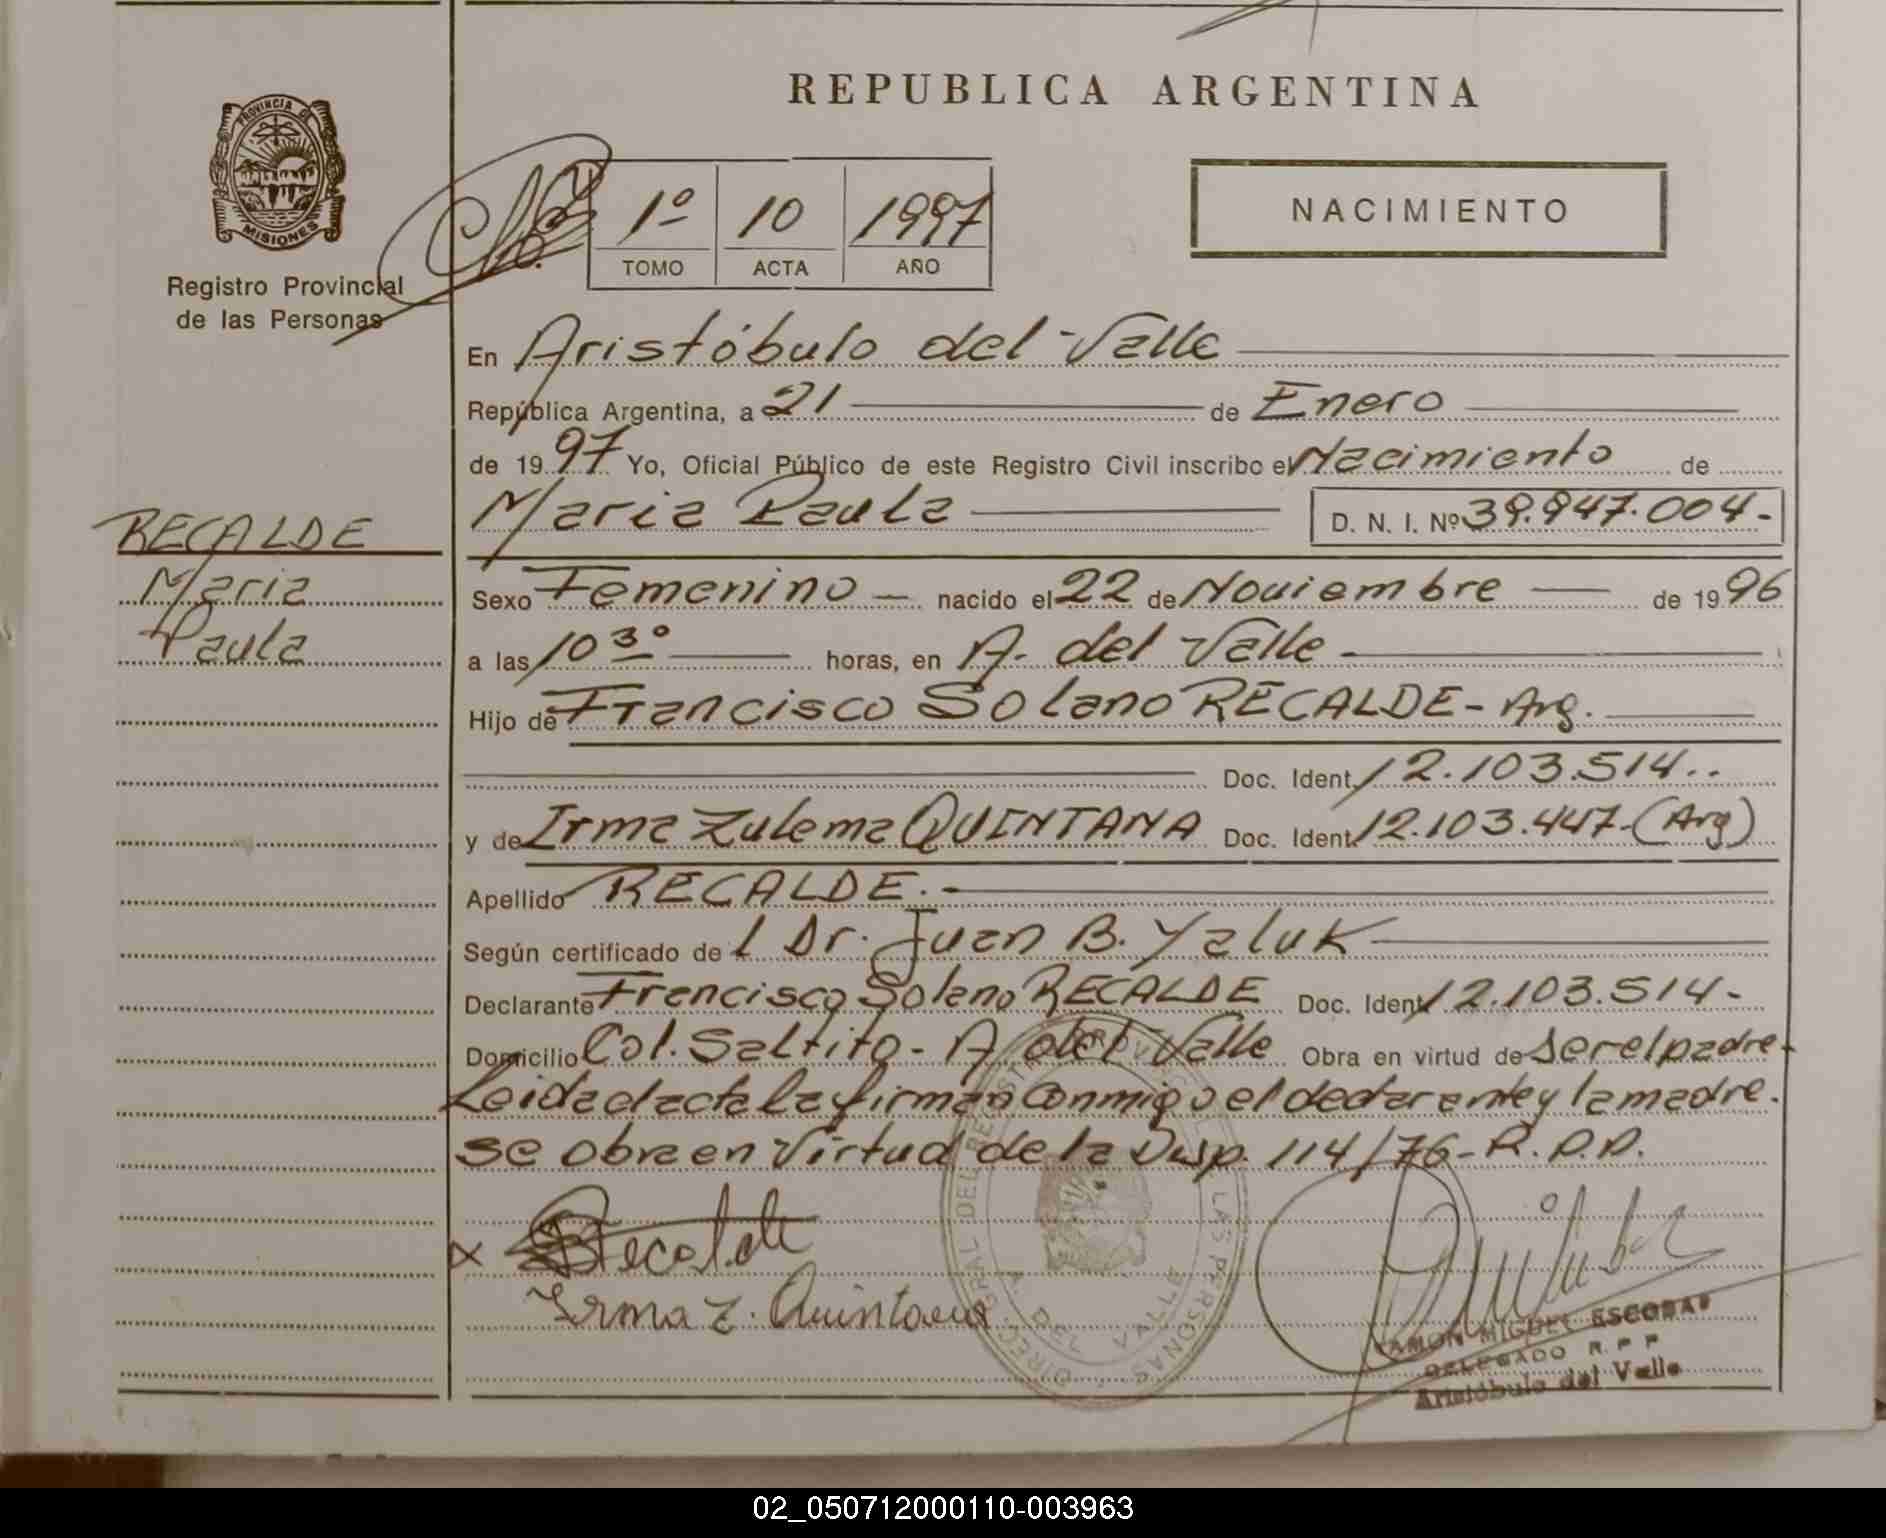 REPUBLICA ARGENTINA
PROVINCIA DE
MISIONES
Registro Provincial
de las Personas
1º 10 1997
TOMO ACTA AÑO
NACIMIENTO
En Aristóbulo del Valle
República Argentina, a 21 de Enero
de 1997 Yo, Oficial Público de este Registro Civil inscribo el Nacimiento de
Maria Paula D. N. I. Nº 39.947.004-
RECALDE
Maria
Paula
Sexo Femenino - nacido el 22 de Noviembre de 1996
a las 10 30 horas, en A. del Valle
Hijo de Francisco Solano RECALDE - Arg.
Doc. Ident. 12.103.514..
y de Irma Zulema QUINTANA Doc. Ident. 12.103.447-(Arg)
Apellido RECALDE.-
Según certificado de l Dr. Juan B. Yaluk
Declarante Francisco Solano RECALDE Doc. Ident. 12.103.514-
Domicilio Col. Saltito - A del Valle Obra en virtud de ser el padre-
Leida el acta la firman conmigo el declarante y la madre.
se obra en virtud de la Disp. 114/76-R.P.P.
x Recalde
Irma Z. Quintana
DIREC. GRAL DEL REGISTRO PROVINCIAL DE LAS PERSONAS
A. DEL VALLE
RAMON MIGUEL ESCOBAR
DELEGADO R.P.P
Aristóbulo del Valle
02_050712000110-003963